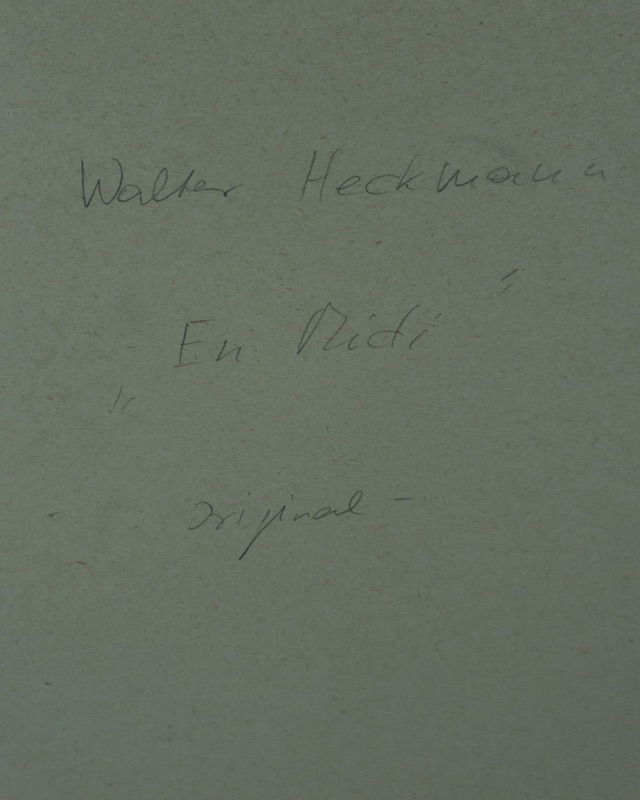 Walter Heckmann
„En Midi“
Original -